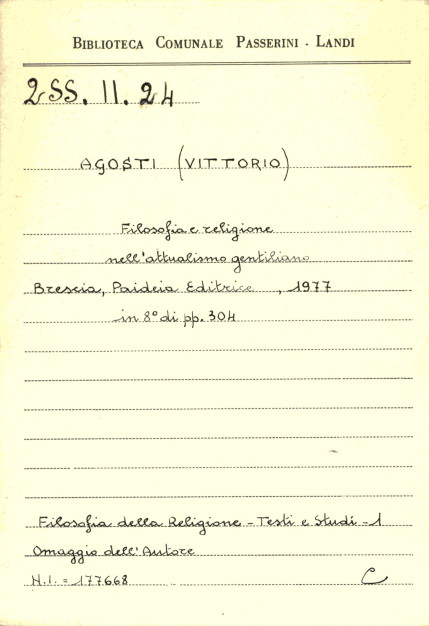 BIBLIOTECA COMUNALE PASSERINI - LANDI
2SS. II. 24
AGOSTI (VITTORIO)
Filosofia e religione
nell'attualismo gentiliano
Brescia, Paideia Editrice , 1977
in 8° di pp. 304
Filosofia della Religione - Testi e Studi - 1
Omaggio dell'Autore
N.I. = 177668
C